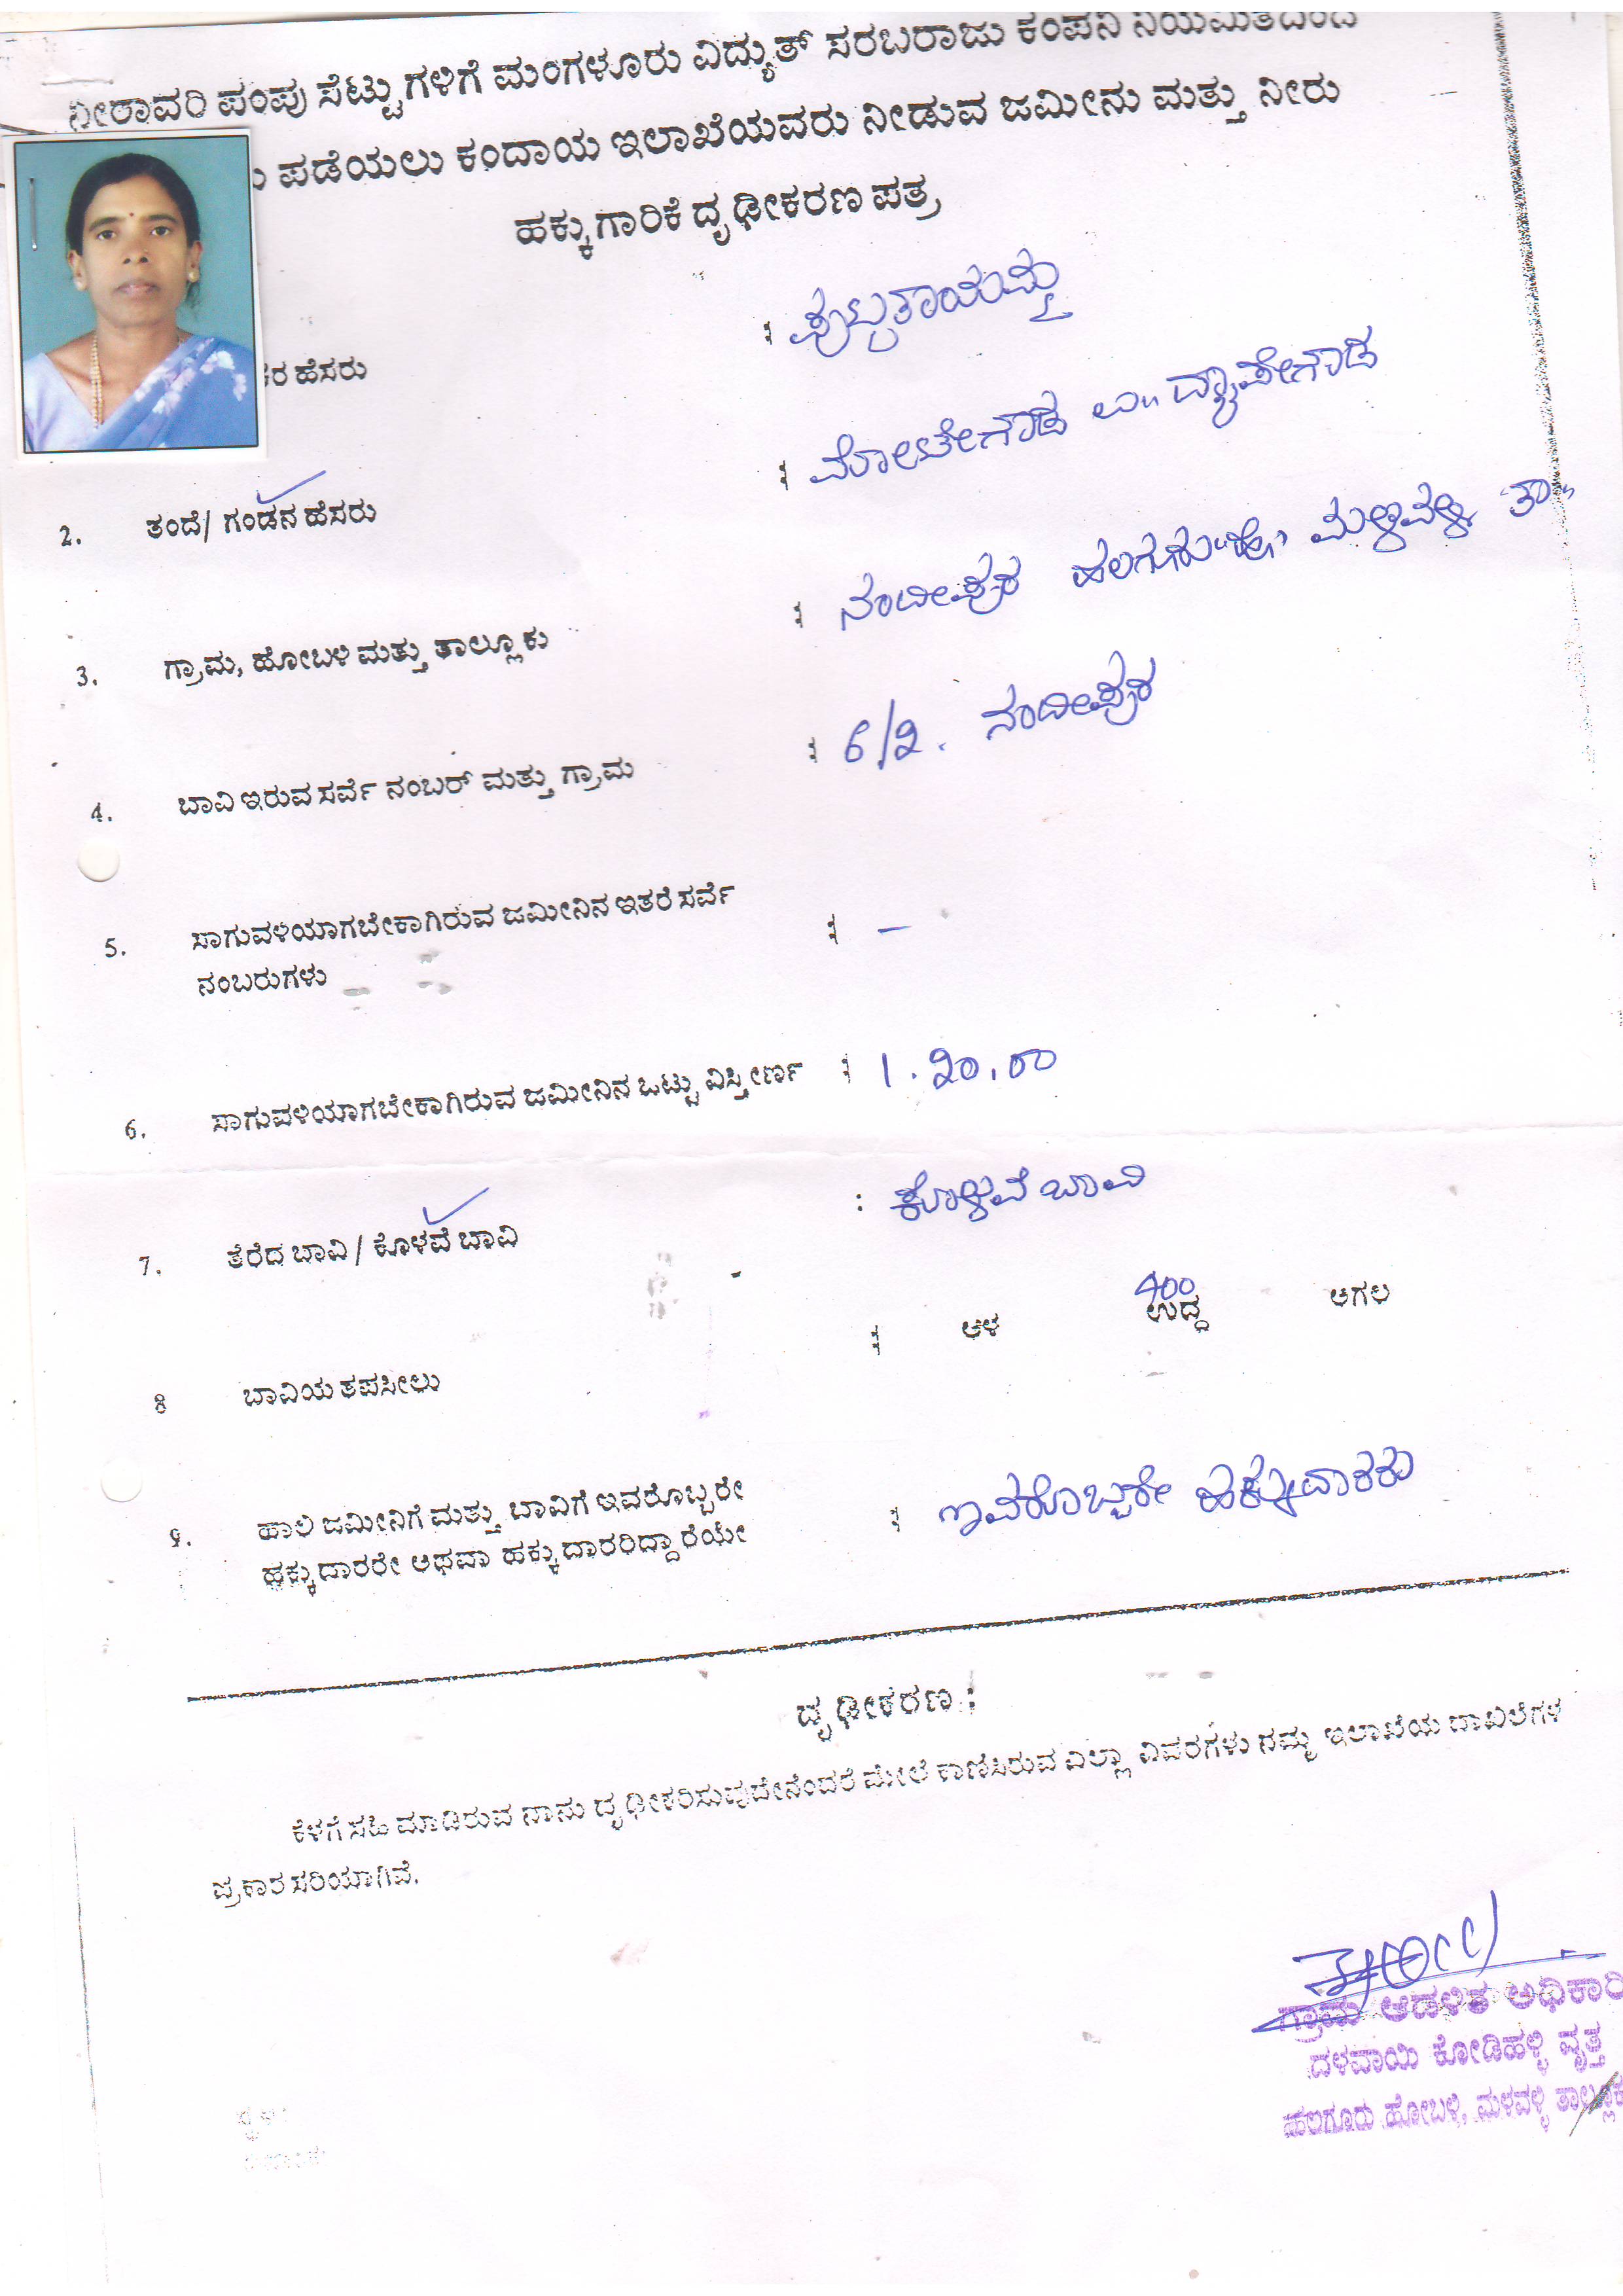 ನೀರಾವರಿ ಪಂಪು ಸೆಟ್ಟುಗಳಿಗೆ ಮಂಗಳೂರು ವಿದ್ಯುತ್ ಸರಬರಾಜು ಕಂಪನಿ ನಿಯಮಿತದಿಂದ
ಪಡೆಯಲು ಕಂದಾಯ ಇಲಾಖೆಯವರು ನೀಡುವ ಜಮೀನು ಮತ್ತು ನೀರು
ಹಕ್ಕುಗಾರಿಕೆ ದೃಢೀಕರಣ ಪತ್ರ
ಹೆಸರು : ಪುಟ್ಟತಾಯಮ್ಮ
2. ತಂದೆ/ ಗಂಡನ ಹೆಸರು :
3. ಗ್ರಾಮ, ಹೋಬಳಿ ಮತ್ತು ತಾಲ್ಲೂಕು : ನಂದೀಪುರ ಹಲಗೂರು "ಹೋ" ಮಳ್ಳವಳ್ಳಿ ತಾ"
4. ಬಾವಿ ಇರುವ ಸರ್ವೆ ನಂಬರ್ ಮತ್ತು ಗ್ರಾಮ : ೬/೨. ನಂದೀಪುರ
5. ಸಾಗುವಳಿಯಾಗಬೇಕಾಗಿರುವ ಜಮೀನಿನ ಇತರೆ ಸರ್ವೆ : –
ನಂಬರುಗಳು
6. ಸಾಗುವಳಿಯಾಗಬೇಕಾಗಿರುವ ಜಮೀನಿನ ಒಟ್ಟು ವಿಸ್ತೀರ್ಣ :
7. ತೆರೆದ ಬಾವಿ / ಕೊಳವೆ ಬಾವಿ : ಕೊಳವೆ ಬಾವಿ
400
8 ಬಾವಿಯ ತಪಸೀಲು : ಆಳ ಉದ್ದ ಅಗಲ
9. ಹಾಲಿ ಜಮೀನಿಗೆ ಮತ್ತು ಬಾವಿಗೆ ಇವರೊಬ್ಬರೇ : ಇವರೊಬ್ಬರೇ ಹಕ್ಕುದಾರರು
ಹಕ್ಕುದಾರರೇ ಅಥವಾ ಹಕ್ಕುದಾರರಿದ್ದಾರೆಯೇ
ದೃಢೀಕರಣ :
ಕೆಳಗೆ ಸಹಿ ಮಾಡಿರುವ ನಾನು ದೃಢೀಕರಿಸುವುದೇನೆಂದರೆ ಮೇಲೆ ಕಾಣಿಸಿರುವ ಎಲ್ಲಾ ವಿವರಗಳು ನಮ್ಮ ಇಲಾಖೆಯ ದಾಖಲೆಗಳ
ಪ್ರಕಾರ ಸರಿಯಾಗಿವೆ.
ಗ್ರಾಮ ಆಡಳಿತ ಅಧಿಕಾರಿ
ದಳವಾಯಿ ಕೋಡಿಹಳ್ಳಿ ವೃತ್ತ
ಹಲಗೂರು ಹೋಬಳಿ, ಮಳವಳ್ಳಿ ತಾಲ್ಲೂಕು